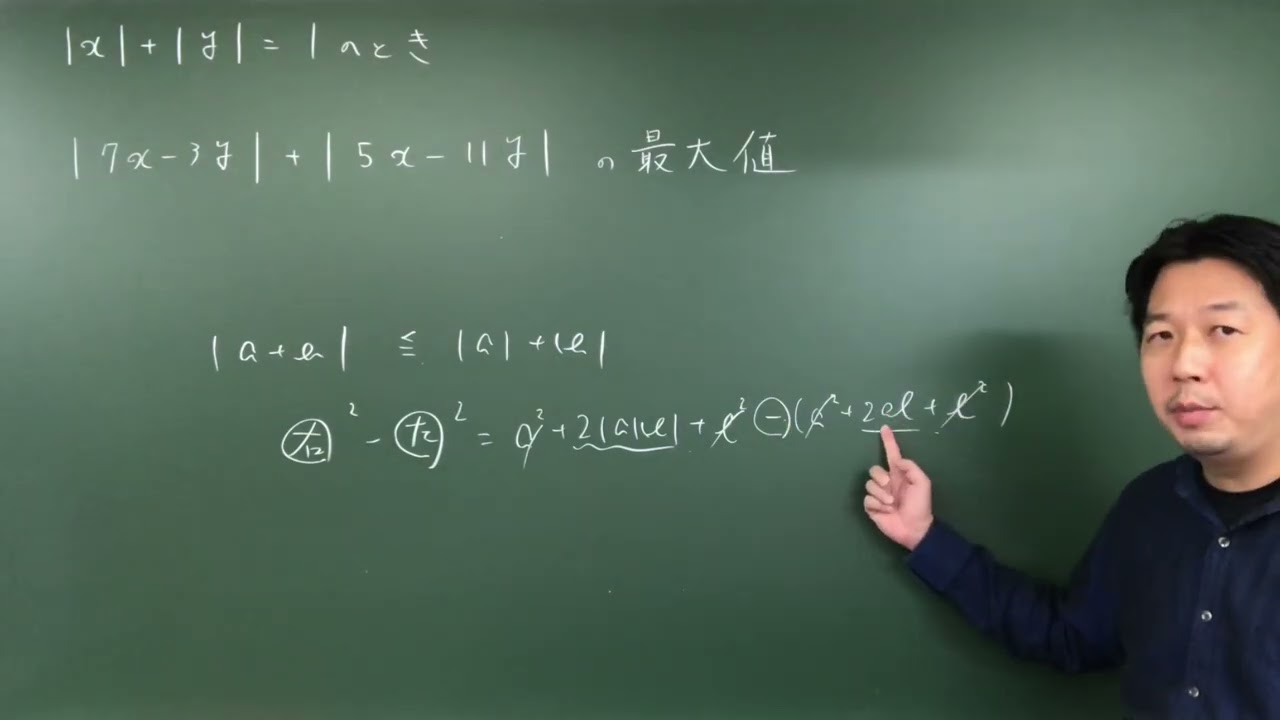 |x|+|y|=1のとき
|7x-3y|+|5x-11y|の最大値
|a+b| ≦ |a|+|b|
右² - 左² = a²+2|a||b|+b²-(a²+2ab+b²)